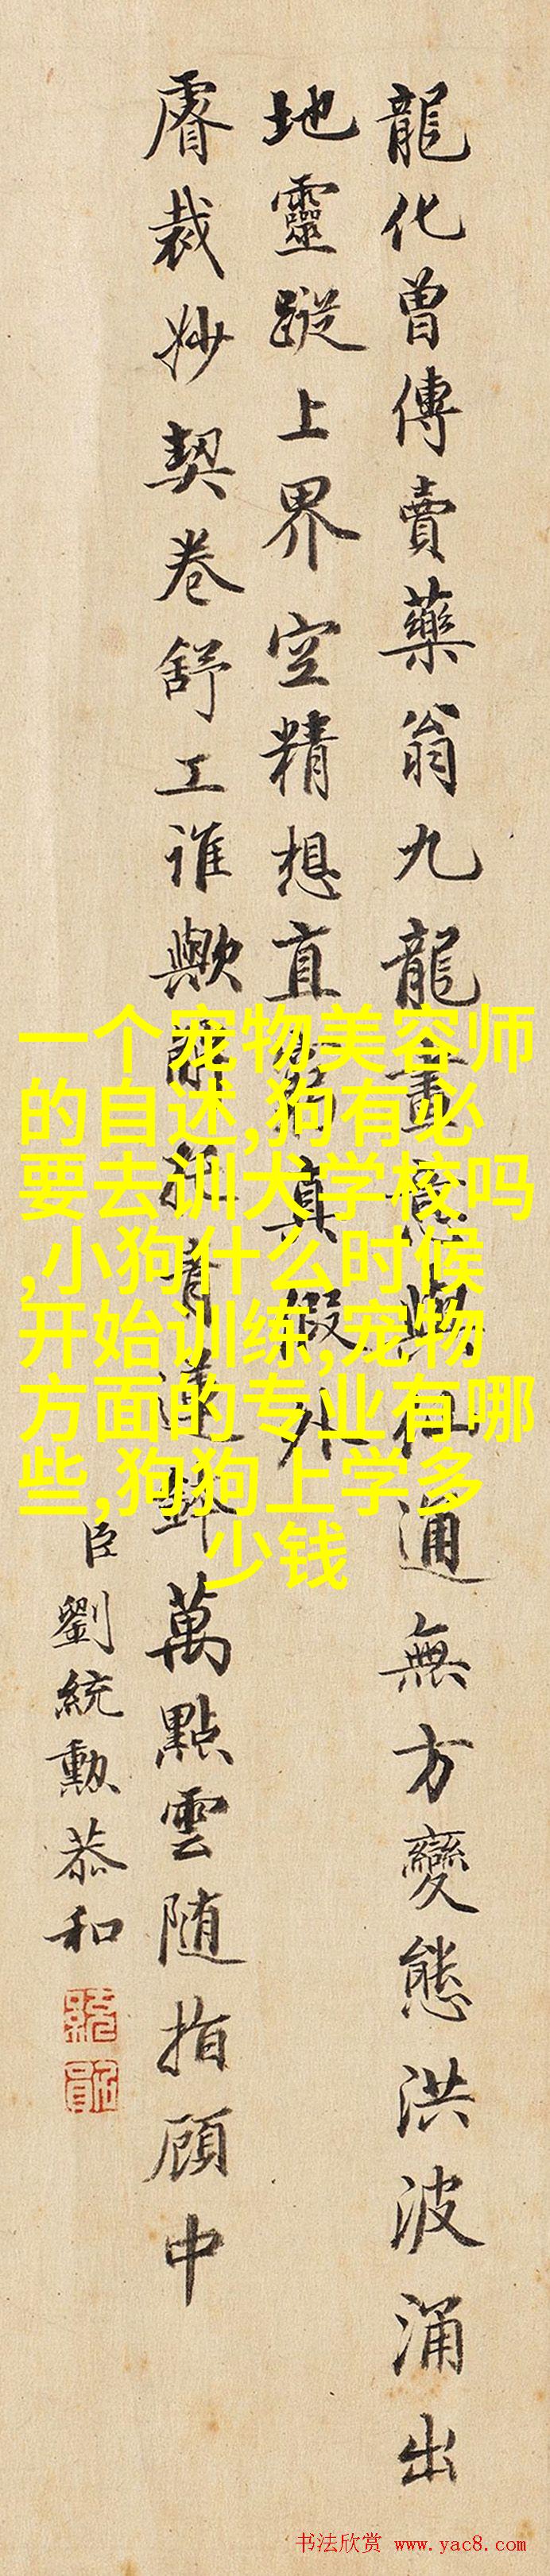 龍化曾傳賣藥翁九龍畫意與仙通無方變態洪波涌出
地靈蹤上界空精想直窮真假外
睿裁妙契卷舒工誰歟萬點雲隨指顧中
臣劉統勳恭和
一个宠物美容师
的自述,狗有必
要去训犬学校吗
,小狗什么时候
开始训练,宠物
方面的专业有哪
些,狗狗上学多
少钱
书法欣赏 www.yac8.com